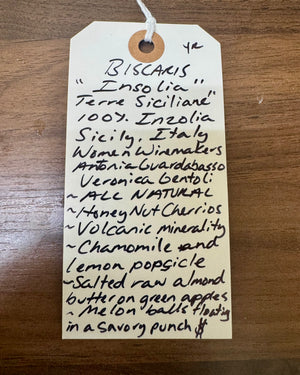 YR
BISCARIS
"Insolia"
Terre Siciliane"
100% Inzolia
Sicily, Italy
Women Winemakers
Antonia Guardabasso
Veronica Bentoli
~ALL NATURAL
~Honey Nut Cherrios
~Volcanic minerality
~Chamomile and
lemon popsicle
~Salted raw almond
butter on green apples
~Melon balls floating
in a savory punch $